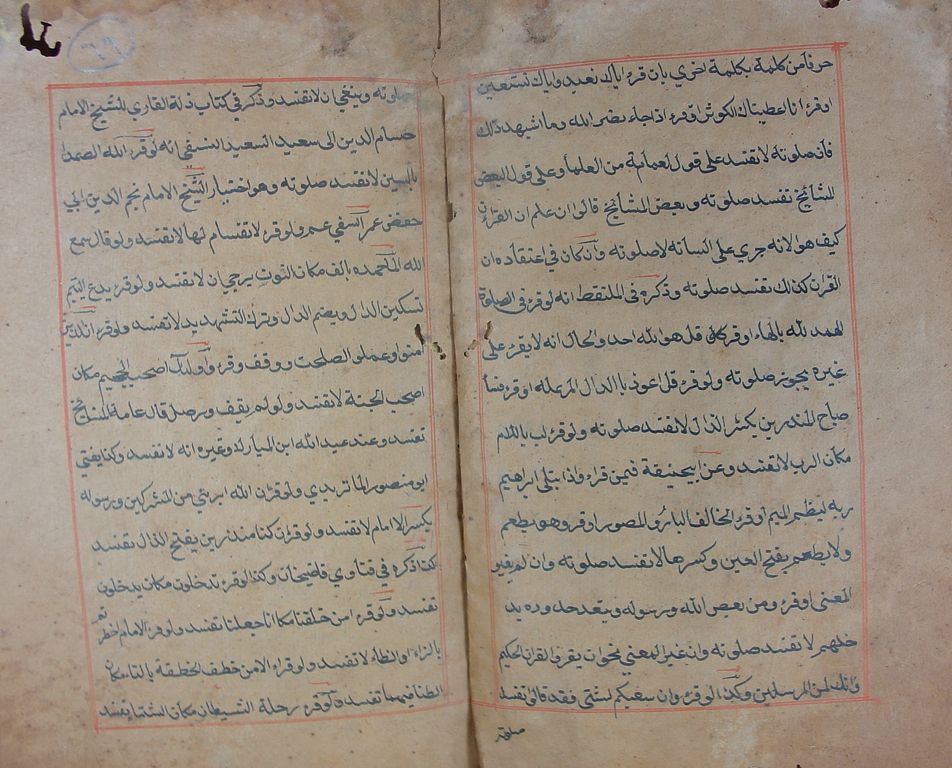 حرفا من كلمة بكلمة اخري بان قرء اياك نعبد واياك نستعين
او قرء انا اعطيناك الكوثر او قرء اذا جاء نصر الله وما اشبهه ذلك
فان صلوته لا تفسد علي قول لعامة من العلماء وعلي قول البعض
المشائخ تفسد صلوته وبعض المشائخ قالي ان علم ان القران
كيف هو لانه جري علي لسانه لا صلوته وان كان في اعتقاده ان
القران كذلك تفسد صلوته وذكره في الملتقط انه لو قرء في الصلوة
الهمد لله بالهاء او قر كل هو الله احد والحال انه لا يقرء علي
غيره يجوز صلوته ولو قرء قل اعوذ با الدال المرمله او قر فسآ
صباح المنذرين بكسر الذال لا تفسد صلوته ولو قر لب باللام
مكان الرب لا تفسد وعن ابيحنيفة فيمن قراء واذا بتلي ابرهيم
ربه الميم او قرء الخالق البارئ والمصور او قر وهو يطعم
ولا يطعم بفتح العين وكسرها لا تفسد صلوته وان لم يغير
المعني او قرء ومن يعص الله ورسوله ويتعد حدوده يد
خلهم لا تفسد صلوته وان غير المعني نحو ان يقرء والقران الحكيم
وانك لمن المرسلين وكذا لو قرء وان سعيكم لشتي فقد قالي تفسد
صلوته
صلوته وينبغي ان لا تفسد وذكر في كتاب ذلة القاري للشيخ الامام
حسام الدين الي سعيد السعيد النسفي انه لو قرء الله الصمد
بالسين لا تفسد صلوته وهو اختيار الشيخ الامام نجم الدين ابي
حفص عمر النسفي عم ولو قرء لا انفسام لها لا تفسد ولو قال سمع
الله لمن حمده بالف مكان النون يرجي ان لا تفسد ولو قرء يدع اليتيم
بتسكين الدال وبضم الدال وترك التشهديد لا تفسد ولو قرء ان الذين
امنوا وعملو الصلحت ووقف وقرء واولئك اصحب الجحيم مكان
اصحب الجنة لا تفسد ولو لم يقف ووصل قال عامة المشائخ
تفسد وعند عبد الله ابن المبارك وغيره انه لا تفسد وكذا يفتي
ابو منصور الماتريدي ولو قرء ان الله ابرئ من المشركين ورسوله
بكسر الامام لا تفسد ولو قرء ان كنا منذرين بفتح الذال تفسد
كذا ذكره في فتاوي قاضيخان وكذا لو قرء تدخلون مكان يدخلون
تفسد ولو قرء من خلقنا مكان جعلنا تفسد ولو قر الامام خطر تم
بالراء او الظاء لا تفسد ولو قراء الا من خطف الخطفة بالتاء مكان
الطاء فيهما تفسد ولو قرء رحلة الشيطان مكان الشتاء تفسد